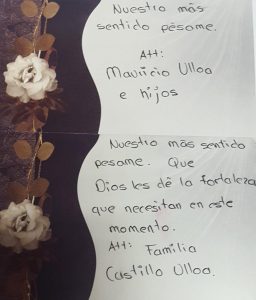 Nuestro más
sentido pésame.
Att:
Mauricio Ulloa
e hijos
Nuestro más sentido
pesame. Que
Dios les dé la fortaleza
que necesitan en este
momento.
Att: Familia
Castillo Ulloa.